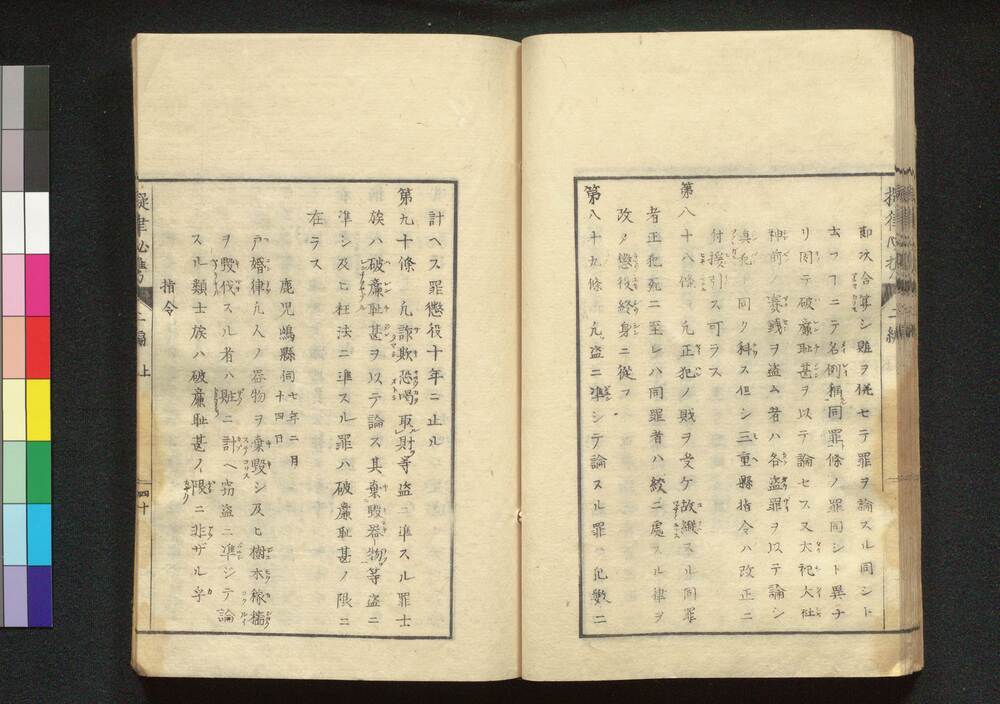 即次合算シ贓ヲ併セテ罪ヲ論スル同シト
云フコニテ名例稱同罪條ノ罪同シト異ナ
リ因テ破廉耻甚ヲ以テ論セス又大祀大社
神前ノ賽錢ヲ盗ム者ハ各盗罪ヲ以テ論シ
真犯ト同ク科ス但シ三重縣指令ハ改正ニ
付援引ス可ラス
第八十八條 凡正犯ノ賍ヲ受ケ故縱スル同罪
者正犯死ニ至レハ同罪者ハ絞ニ處スル律ヲ
改メ懲役終身ニ從フ
第八十九條 凡盗ニ準シテ論スル罪ハ犯數ニ
計ヘス罪懲役十年ニ止ル
第九十條 凡詐欺恐喝取財等盗ニ準スル罪士
族ハ破廉耻甚ヲ以テ論ス其棄毀器物等盗ニ
準シ及ヒ枉法ニ準スル罪ハ破廉耻甚ノ限ニ
在ラス
鹿児嶋縣伺 七年二月十四日
戸婚律凡人ノ器物ヲ棄毀シ及ヒ樹木稼穡
ヲ毀伐スル者ハ賍ニ計ヘ窃盗ニ準シテ論
スル類士族ハ破廉耻甚ノ限ニ非ザル乎
指令
二編 上
四十